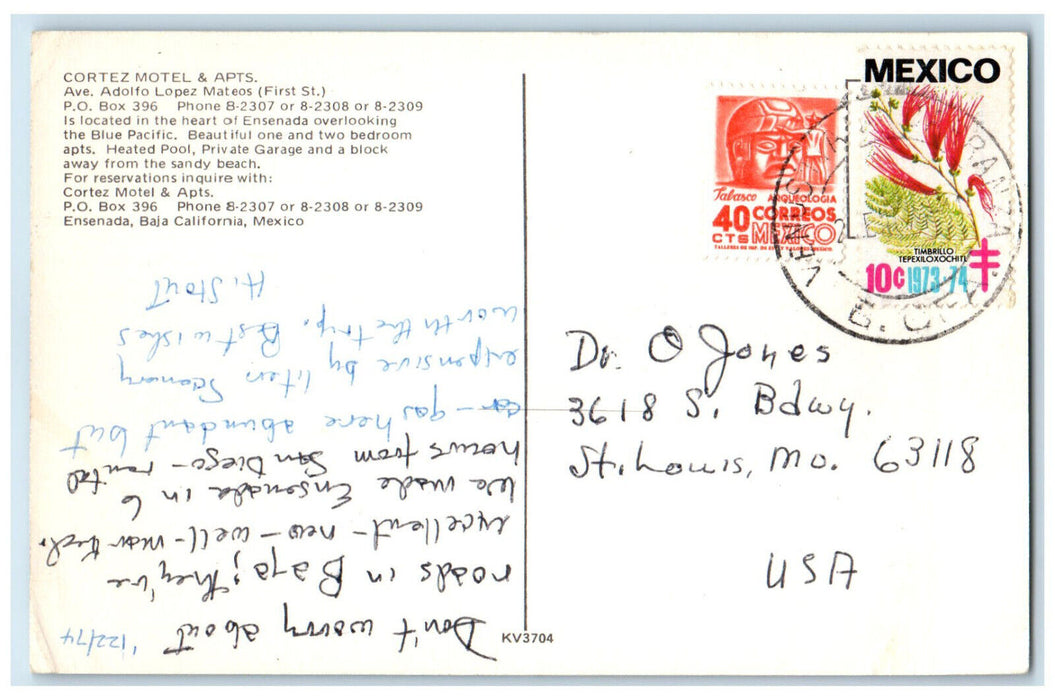 CORTEZ MOTEL & APTS.
Ave. Adolfo Lopez Mateos (First St.)
P.O. Box 396 Phone 8-2307 or 8-2308 or 8-2309
Is located in the heart of Ensenada overlooking
the Blue Pacific. Beautiful one and two bedroom
apts. Heated Pool, Private Garage and a block
away from the sandy beach.
For reservations inquire with:
Cortez Motel & Apts.
P.O. Box 396 Phone 8-2307 or 8-2308 or 8-2309
Ensenada, Baja California, Mexico
'122/74
Don't worry about
roads in Baja; they're
excellent - new - well-marked.
We made Ensenada in 6
hours from San Diego - rental
car - gas here abundant but
expensive by liter. Scenary
worth the trip. Best wishes
H. Stout
KV3704
Tabasco ARQUEOLOGIA
40 CORREOS
CTS MEXICO
MEXICO
TIMBRILLO
TEPEXILOXOCHITL
10¢ 1973-74
Dr. O Jones
3618 S. Bdwy.
St. Louis, Mo. 63118
USA